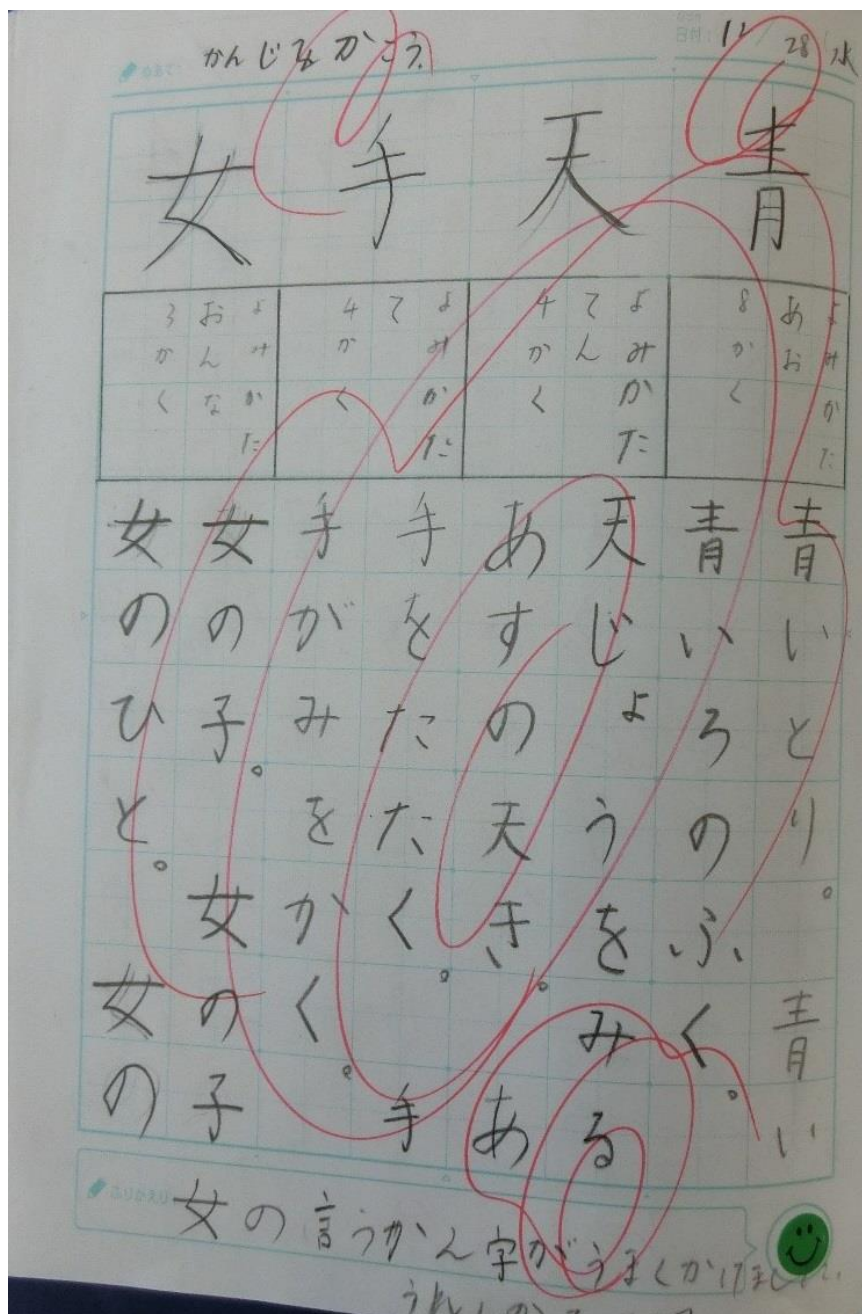 めあて
かんじをかこう。
日付
12/28 水
青
天
手
女
よみかた
あお
8かく
よみかた
てん
4かく
よみかた
て
4かく
よみかた
おんな
3かく
青いとり。青い
青いろのふく。
天じょうをみる
あすの天き。あ
手をたたく。手
手がみをかく。
女の子。女の子
女のひと。女の
ふりかえり
女の言うかん字がうまくかけました。